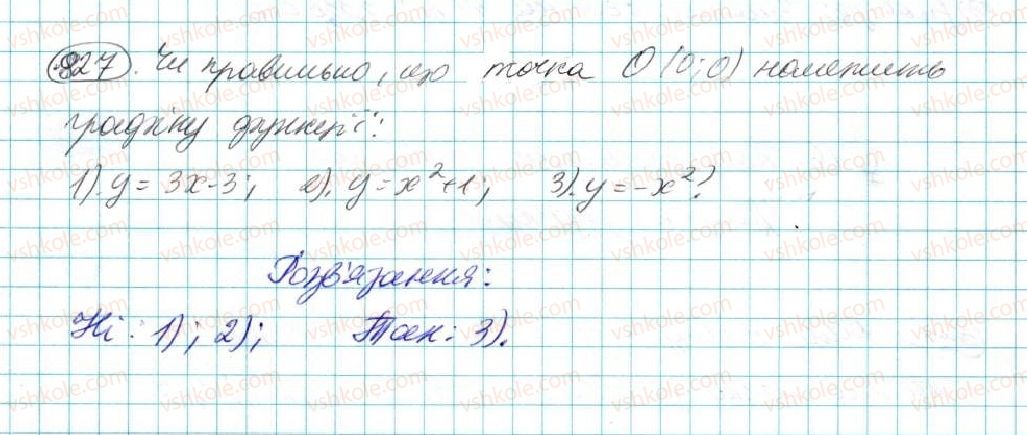 827. Чи правильно, що точка O(0;0) належить
графіку функції:
1). y = 3x-3; 2). y = x²+1; 3). y = -x²?
Розв'язання:
Ні: 1); 2); Так: 3).